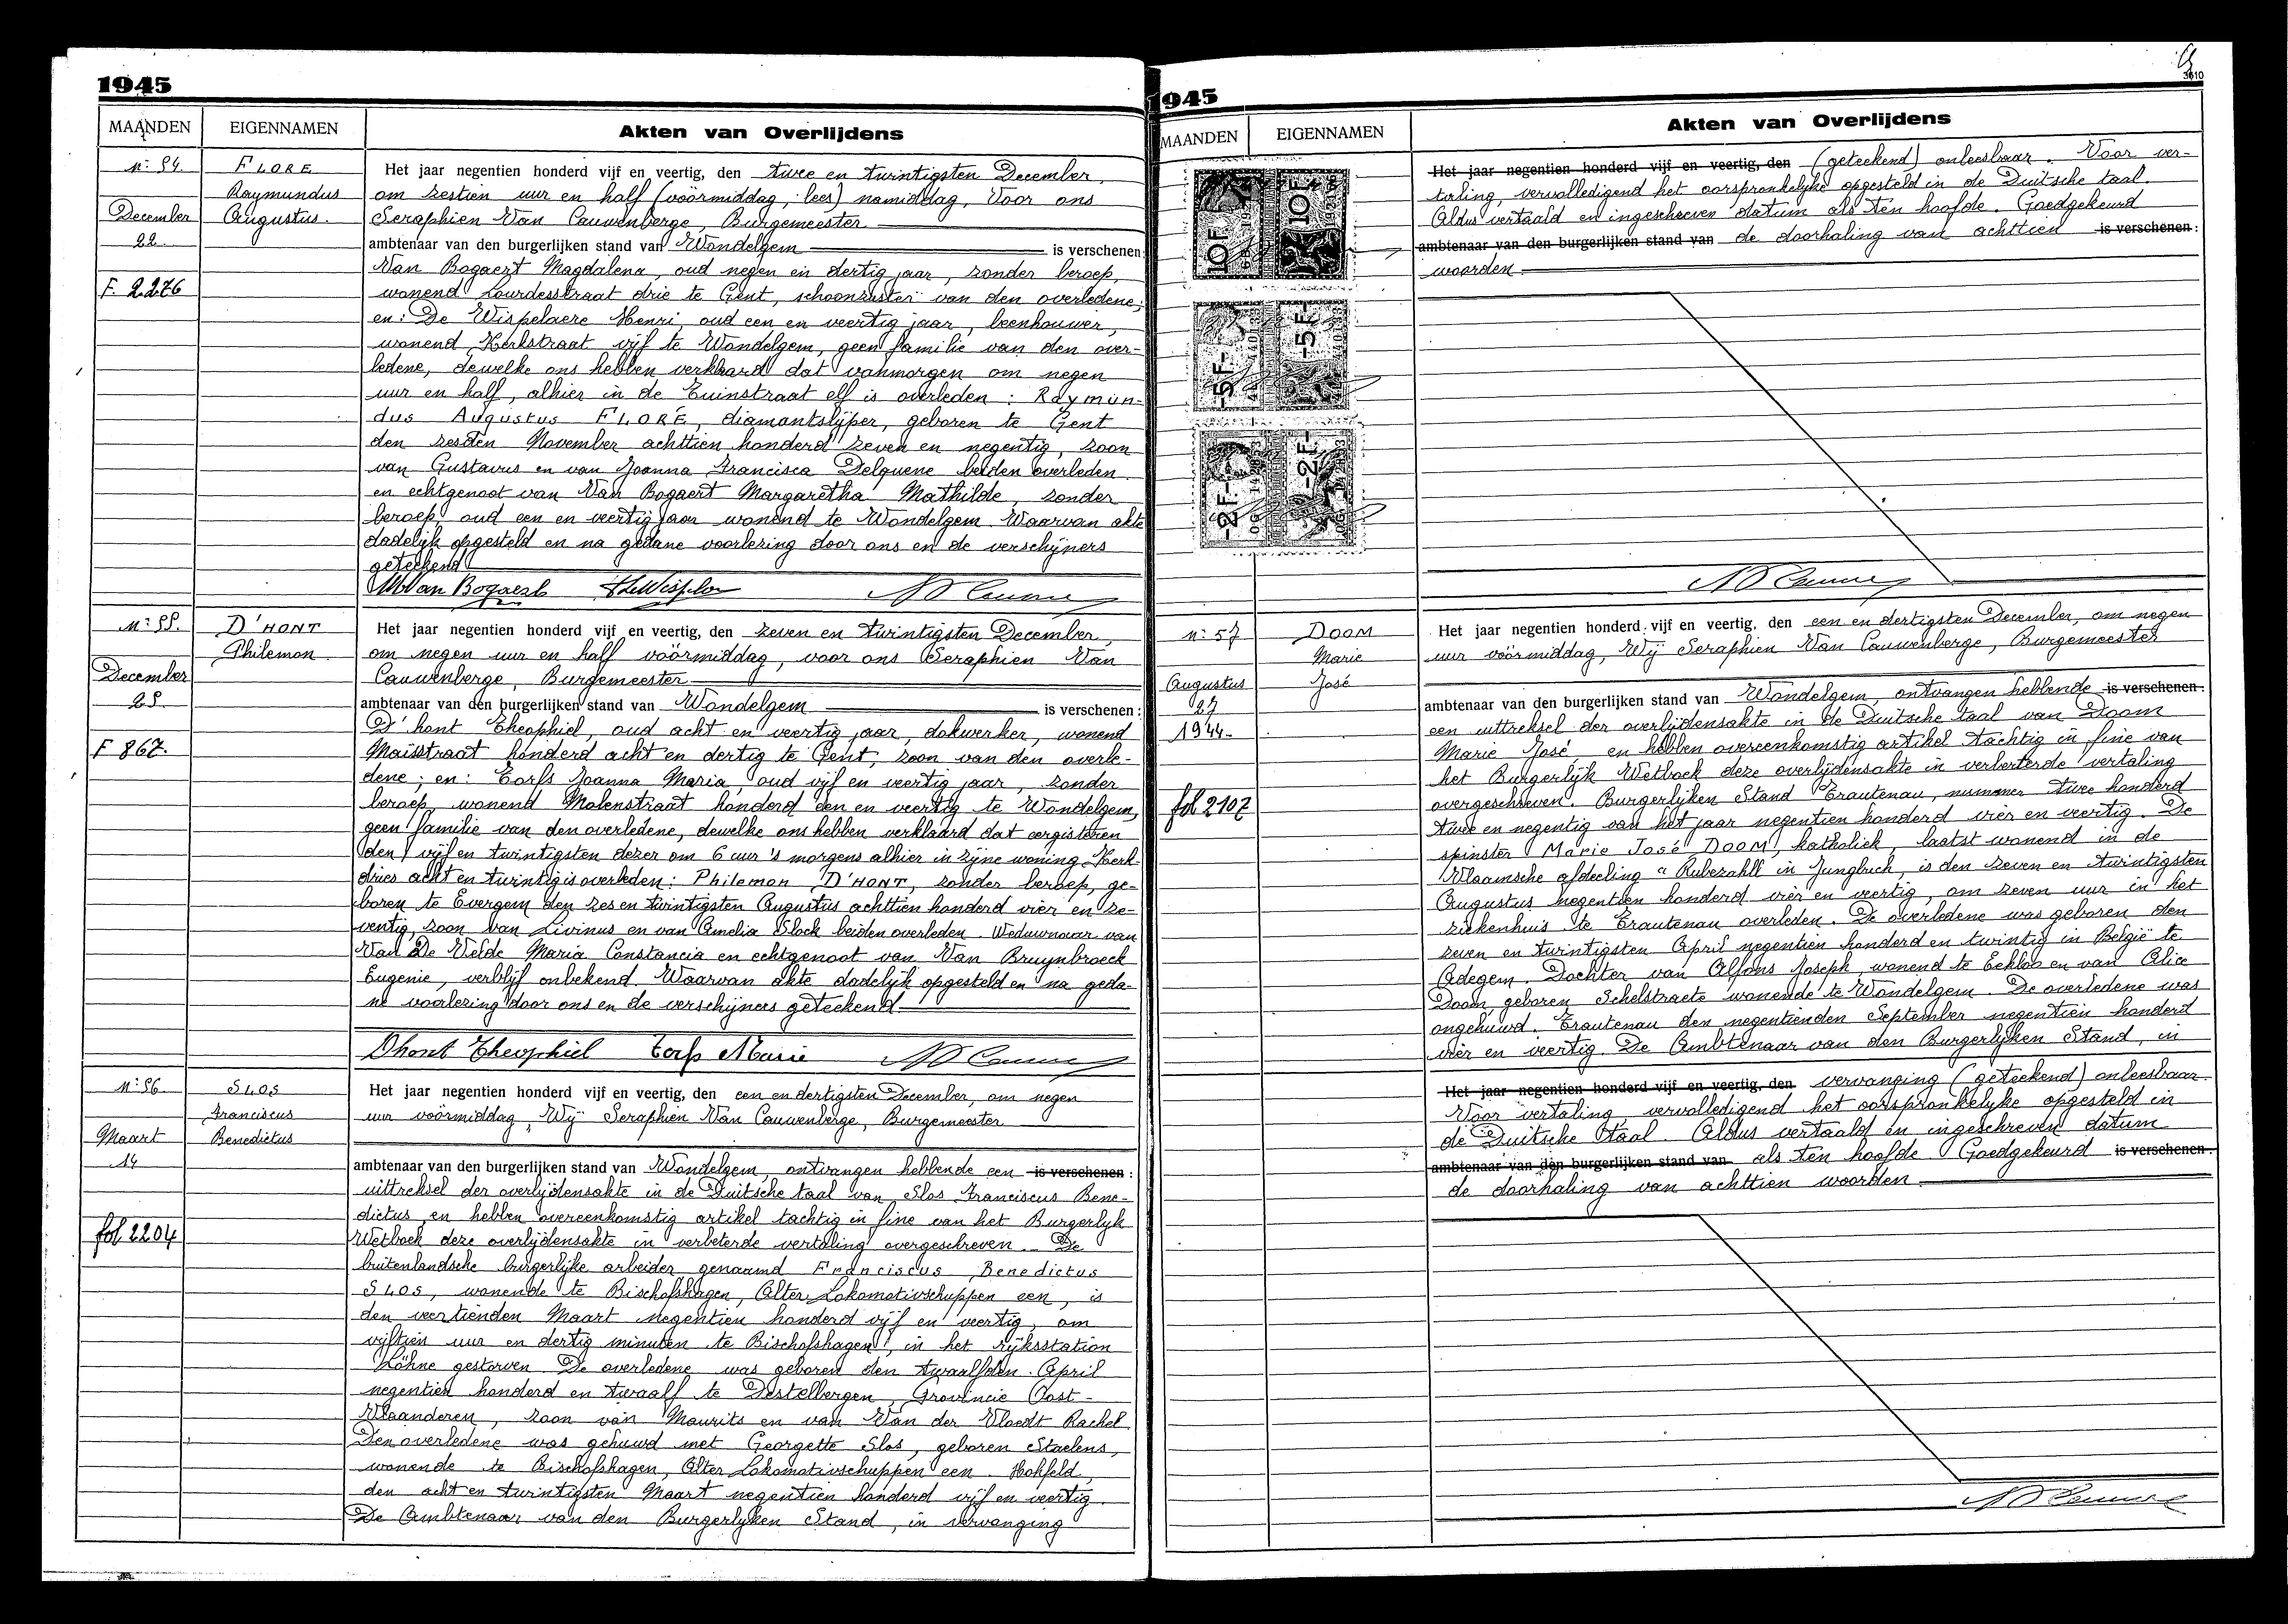 1945
MAANDEN EIGENNAMEN Akten van Overlijdens
N: 54. FLORE Het jaar negentien honderd vijf en veertig, den twee en twintigsten December,
Raymundus om zestien uur en half (vóórmiddag, lees) namiddag, Voor ons
December Augustus. Seraphien Van Cauwenberge, Burgemeester
22. ambtenaar van den burgerlijken stand van Wondelgem is verschenen:
Van Bogaert Magdalena, oud negen en dertig jaar, zonder beroep,
F. 2276 wonend Lourdesstraat drie te Gent, schoonzuster van den overledene;
en: De Wispelaere Henri, oud een en veertig jaar, beenhouwer,
wonend Kerkstraat vijf te Wondelgem, geen familie van den over-
ledene, dewelke ons hebben verklaard dat vanmorgen om negen
uur en half, alhier in de Tuinstraat elf is overleden: Raymun-
dus Augustus FLORÉ, diamantslijper, geboren te Gent
den zesden November achttien honderd zeven en negentig, zoon
van Gustavus en van Joanna Francisca Delquene beiden overleden
en echtgenoot van Van Bogaert Margaretha Mathilde, zonder
beroep, oud een en veertig jaar wonend te Wondelgem. Waarvan akte
dadelijk opgesteld en na gedane voorlezing door ons en de verschijners
geteekend
M Van Bogaert
N: 55. D'HONT Het jaar negentien honderd vijf en veertig, den zeven en twintigsten December,
Philemon om negen uur en half vóórmiddag, voor ons Seraphien Van
December Cauwenberge, Burgemeester
25. ambtenaar van den burgerlijken stand van Wondelgem is verschenen:
D'hont Theophiel, oud acht en veertig jaar, dokwerker, wonend
F 867. Maisstraat honderd acht en dertig te Gent, zoon van den overle-
dene; en: Torfs Joanna Maria, oud vijf en veertig jaar, zonder
beroep, wonend Molenstraat honderd een en veertig te Wondelgem,
geen familie van den overledene, dewelke ons hebben verklaard dat eergisteren
den vijf en twintigsten dezer om 6 uur 's morgens alhier in zijne woning Kerk-
dries acht en twintig is overleden: Philemon D'HONT, zonder beroep, ge-
boren te Evergem den zes en twintigsten Augustus achttien honderd vier en ze-
ventig, zoon van Livinus en van Amelia Slock beiden overleden. Weduwnaar van
Van De Velde Maria Constancia en echtgenoot van Van Bruynbroeck
Eugenie, verblijf onbekend. Waarvan akte dadelijk opgesteld en na geda-
ne voorlezing door ons en de verschijners geteekend
Dhont Theophiel Torfs Marie
N: 56 SLOS Het jaar negentien honderd vijf en veertig, den een en dertigsten December, om negen
Franciscus uur vóórmiddag, Wij Seraphien Van Cauwenberge, Burgemeester
Maart Benedictus
14 ambtenaar van den burgerlijken stand van Wondelgem, ontvangen hebbende een is verschenen:
uittreksel der overlijdensakte in de Duitsche taal van Slos Franciscus Bene-
dictus en hebben overeenkomstig artikel tachtig in fine van het Burgerlijk
fol 2204 Wetboek deze overlijdensakte in verbeterde vertaling overgeschreven. De
buitenlandsche burgerlijke arbeider genaamd Franciscus Benedictus
SLOS, wonende te Bischofshagen, Alter Lokomotivschuppen een, is
den veertienden Maart negentien honderd vijf en veertig, om
vijftien uur en dertig minuten te Bischofshagen, in het rijksstation
Löhne gestorven. De overledene was geboren den twaalfden April
negentien honderd en twaalf te Destelbergen, Provincie Oost-
Vlaanderen, zoon van Maurits en van Van der Vloedt Rachel
Den overledene was gehuwd met Georgette Slos, geboren Staelens,
wonende te Bischofshagen, Alter Lokomotivschuppen een. Hohfeld,
den acht en twintigsten Maart negentien honderd vijf en veertig.
De Ambtenaar van den Burgerlijken Stand, in vervanging
3610
1945
MAANDEN EIGENNAMEN Akten van Overlijdens
Het jaar negentien honderd vijf en veertig, den (geteekend) onleesbaar. Voor ver-
taling, vervolledigend het oorspronkelijke opgesteld in de Duitsche taal.
Aldus vertaald en ingeschreven datum als ten hoofde. Goedgekeurd
ambtenaar van den burgerlijken stand van de doorhaling van achttien is verschenen:
woorden
10F 10F
-5F- -5F-
-2F- -2F-
N: 57 DOOM Het jaar negentien honderd vijf en veertig, den een en dertigsten December, om negen
Marie uur vóórmiddag, Wij Seraphien Van Cauwenberge, Burgemeester
Augustus José
27 ambtenaar van den burgerlijken stand van Wondelgem, ontvangen hebbende is verschenen:
1944- een uittreksel der overlijdensakte in de Duitsche taal van Doom
Marie José en hebben overeenkomstig artikel tachtig in fine van
het Burgerlijk Wetboek deze overlijdensakte in verbeterde vertaling
fol 2107 overgeschreven. Burgerlijken Stand Trautenau, nummer twee honderd
twee en negentig van het jaar negentien honderd vier en veertig. De
spinster Marie José DOOM, katholiek, laatst wonend in de
Vlaamsche afdeeling "Rubezahl" in Jungbuch, is den zeven en twintigsten
Augustus negentien honderd vier en veertig, om zeven uur in het
ziekenhuis te Trautenau overleden. De overledene was geboren den
zeven en twintigsten April negentien honderd en twintig in België te
Adegem. Dochter van Alfons Joseph, wonend te Eekloo en van Alice
Doom, geboren Schelstraete wonende te Wondelgem. De overledene was
ongehuwd. Trautenau den negentienden September negentien honderd
vier en veertig. De Ambtenaar van den Burgerlijken Stand, in
Het jaar negentien honderd vijf en veertig, den vervanging (geteekend) onleesbaar.
Voor vertaling, vervolledigend het oorspronkelijke opgesteld in
de Duitsche taal. Aldus vertaald en ingeschreven datum
ambtenaar van den burgerlijken stand van als ten hoofde. Goedgekeurd is verschenen:
de doorhaling van achttien woorden